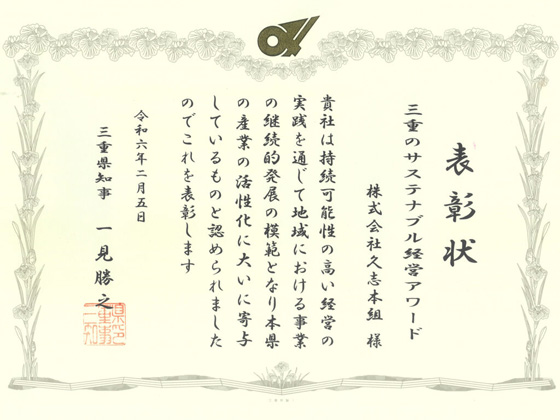 表彰状
三重のサステナブル経営アワード
株式会社久志本組 様
貴社は持続可能性の高い経営の
実践を通じて地域における事業
の継続的発展の模範となり本県
の産業の活性化に大いに寄与
しているものと認められました
のでこれを表彰します
令和六年二月五日
三重県知事 一見勝之